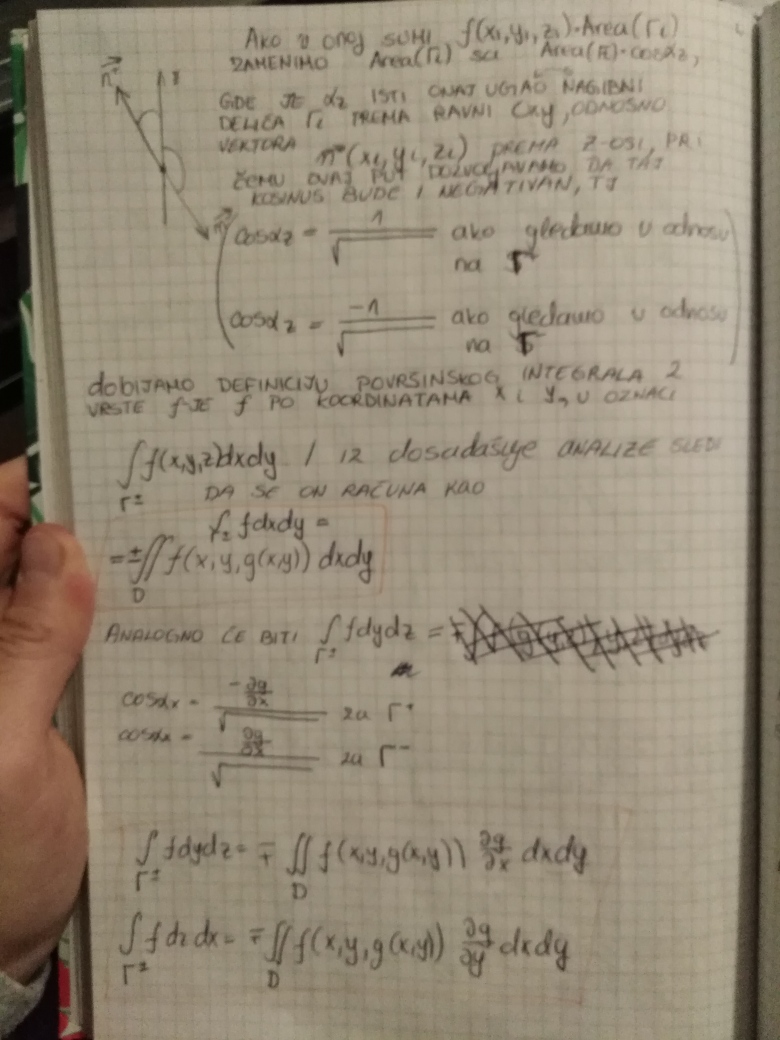 AKO U ONOJ SUMI f(xᵢ,yᵢ,zᵢ)·Area(Γᵢ)
ZAMENIMO Area(Γᵢ) sa Area(Γᵢ)·cosαz,
GDE JE αz ISTI ONAJ UGAO NAGIBNI
DELIĆA Γᵢ PREMA RAVNI Oxy, ODNOSNO
VEKTORA n⃗(xᵢ,yᵢ,zᵢ) PREMA Z-OSI, PRI
ČEMU OVAJ PUT DOZVOLJAVAMO DA TAJ
KOSINUS BUDE I NEGATIVAN, TJ
cosαz = 1/√ ako gledamo u odnosu
na Γ⁺
cosαz = -1/√ ako gledamo u odnosu
na Γ⁻
DOBIJAMO DEFINICIJU POVRŠINSKOG INTEGRALA 2
VRSTE f-JE f PO KOORDINATAMA x i y, U OZNACI
∫_Γ± f(x,y,z)dxdy / IZ dosadašnje ANALIZE SLEDI
DA SE ON RAČUNA KAO
∫_Γ± fdxdy =
= ±∬_D f(x,y,g(x,y)) dxdy
ANALOGNO ĆE BITI ∫_Γ± fdydz =
cosαx = -∂g/∂x / √ za Γ⁺
cosαx = ∂g/∂x / √ za Γ⁻
∫_Γ± fdydz = ∓ ∬_D f(x,y,g(x,y)) ∂g/∂x dxdy
∫_Γ± f dz dx = ∓∬_D f(x,y,g(x,y)) ∂g/∂y dxdy